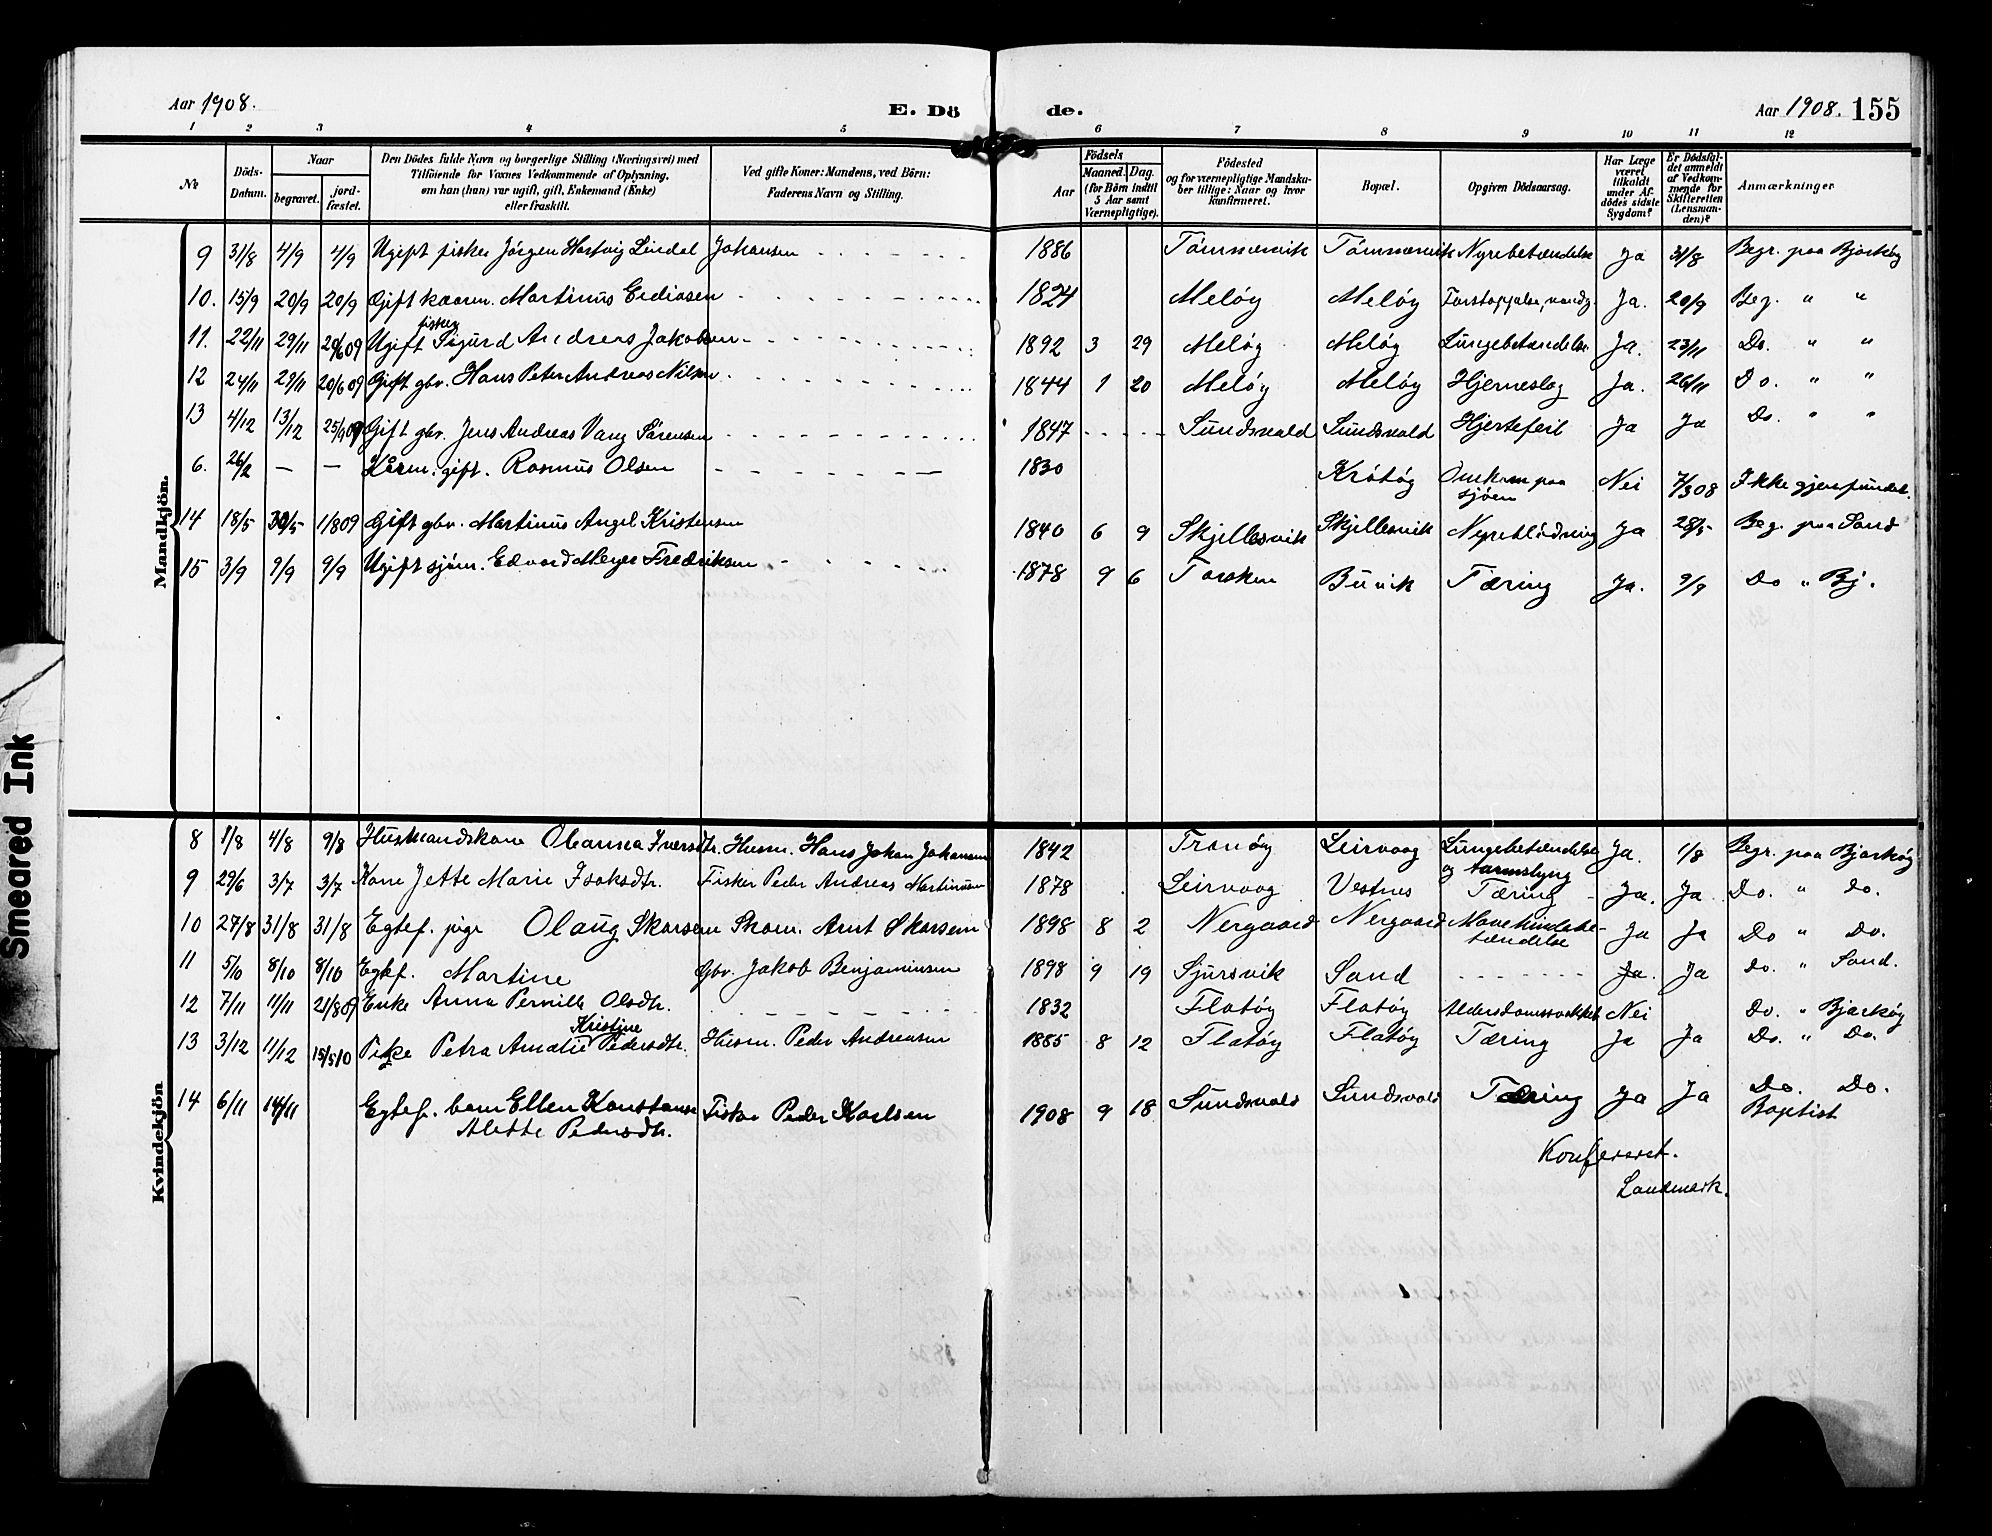 Aar 1908. E. Dö de. Aar 1908. 155
1 2 3 4 5 6 7 8 9 10 11 12
No Döds-Datum. Naar begravet. jord-fæstet. Den Dödes fulde Navn og borgerlige Stilling (Næringsvei) med Tilföiende for Voxnes Vedkommende af Oplysning, om han (hun) var ugift, gift, Enkemand (Enke) eller fraskilt. Ved gifte Koner: Mandens, ved Börn: Faderens Navn og Stilling. Födsels Aar Maaned. Dag. (for Börn indtil 5 Aar samt Værnepligtige). Födested og for værnepligtige Mandskaber tillige: Naar og hvor konfirmeret. Bopæl. Opgiven Dödsaarsag. Har Læge været tilkaldt under Afdödes sidste Sygdom? Er Dödsfaldet anmeldt af Vedkommende for Skifteretten (Lensmanden)? Anmærkninger
Mandkjön.
9 31/8 4/9 4/9 Ugift fisker Jörgen Hartvig Lindal Johansen 1886 Tömmervik Tömmervik Nyrebetændelse Ja 31/8 Begr. paa Bjarköy
10. 15/9 20/9 20/9 Gift kaarm. Martinus Erdiasen 1824 Melöy Melöy Forstoppelse, Ja. 20/9 Beg. " "
11. 22/11 29/11 20/6 09 Ugift fisker Sigurd Andreas Jakobsen 1892 3 29 Melöy Melöy Lungebetændelse Ja. 23/11 Do. " "
12 24/11 29/11 20/6 09 Gift gbr. Hans Peter Andreas Nilsen 1844 1 20 Melöy Melöy Hjerneslag Ja. 26/11 Do. " "
13 4/12 13/12 Gift gbr. Jens Andreas Vang Sörensen 1847 Sundsvald Sundsvald Hjertefeil Ja Ja Do. " "
6. 26/2 — — Kårm. gift. Rasmus Olsen 1830 Krötöy Omkom paa sjöen Nei 7/3 08 Ikke gjenfundet.
14 18/5 30/5 1/8 09 Gift gbr. Martinus Angel Kristensen 1840 6 9 Skjellesvik Skjellesvik Nyreblödning Ja 28/5 Beg. paa Sand
15 3/9 9/9 9/9 Ugift sjöm. Edvard Meyer Fredriksen 1878 9 6 Torsken Buvik Tæring Ja. 9/9 Do " Bj.
Kvindekjön
8 1/8 4/8 9/8 Husmandskone Olianna Iversdtr. Husm. Hans Johan Johansen 1842 Tranöy Leirvaag Lungebetændelse og tarmslyng Ja. 1/8 Begr. paa Bjarköy
9 29/6 3/7 3/7 Kone Jette Marie Isaksdtr. Fisker Peder Andreas Martinusen 1878 Leirvaag Vestnes Tæring Ja. Ja Do. " Do.
10 27/8 31/8 31/8 Egtef. pige Olaug Skarsem Skom. Arnt Skarsem 1898 8 2 Nergaard Nergaard Mavehindebetændelse Ja Ja Do " Do.
11 5/10 8/10 8/10 Egtef. Martine Gbr. Jakob Benjaminsen 1898 9 19 Sjursvik Sand Ja. Ja Do. " Sand.
12 7/11 11/11 21/8 09 Enke Anna Pernille Olsdtr. 1832 Flatöy Flatöy Alderdomssvækket Nei Do. " Bjarköy
13 3/12 11/12 15/5 10 Pike Petra Amalie Kristine Pedersdtr. Husm. Peder Andreasen 1885 8 12 Flatöy Flatöy Tæring Ja Ja Do. " Do.
14 6/11 14/11 Egtef. barn Ellen Konstanse Fisker Peder Karlsen 1908 9 18 Sundsvald Sundsvald Tæring Ja Ja Do. Do.
Alette Pedersdtr. Baptist
Konfereret.
Landmark.
Smeared Ink